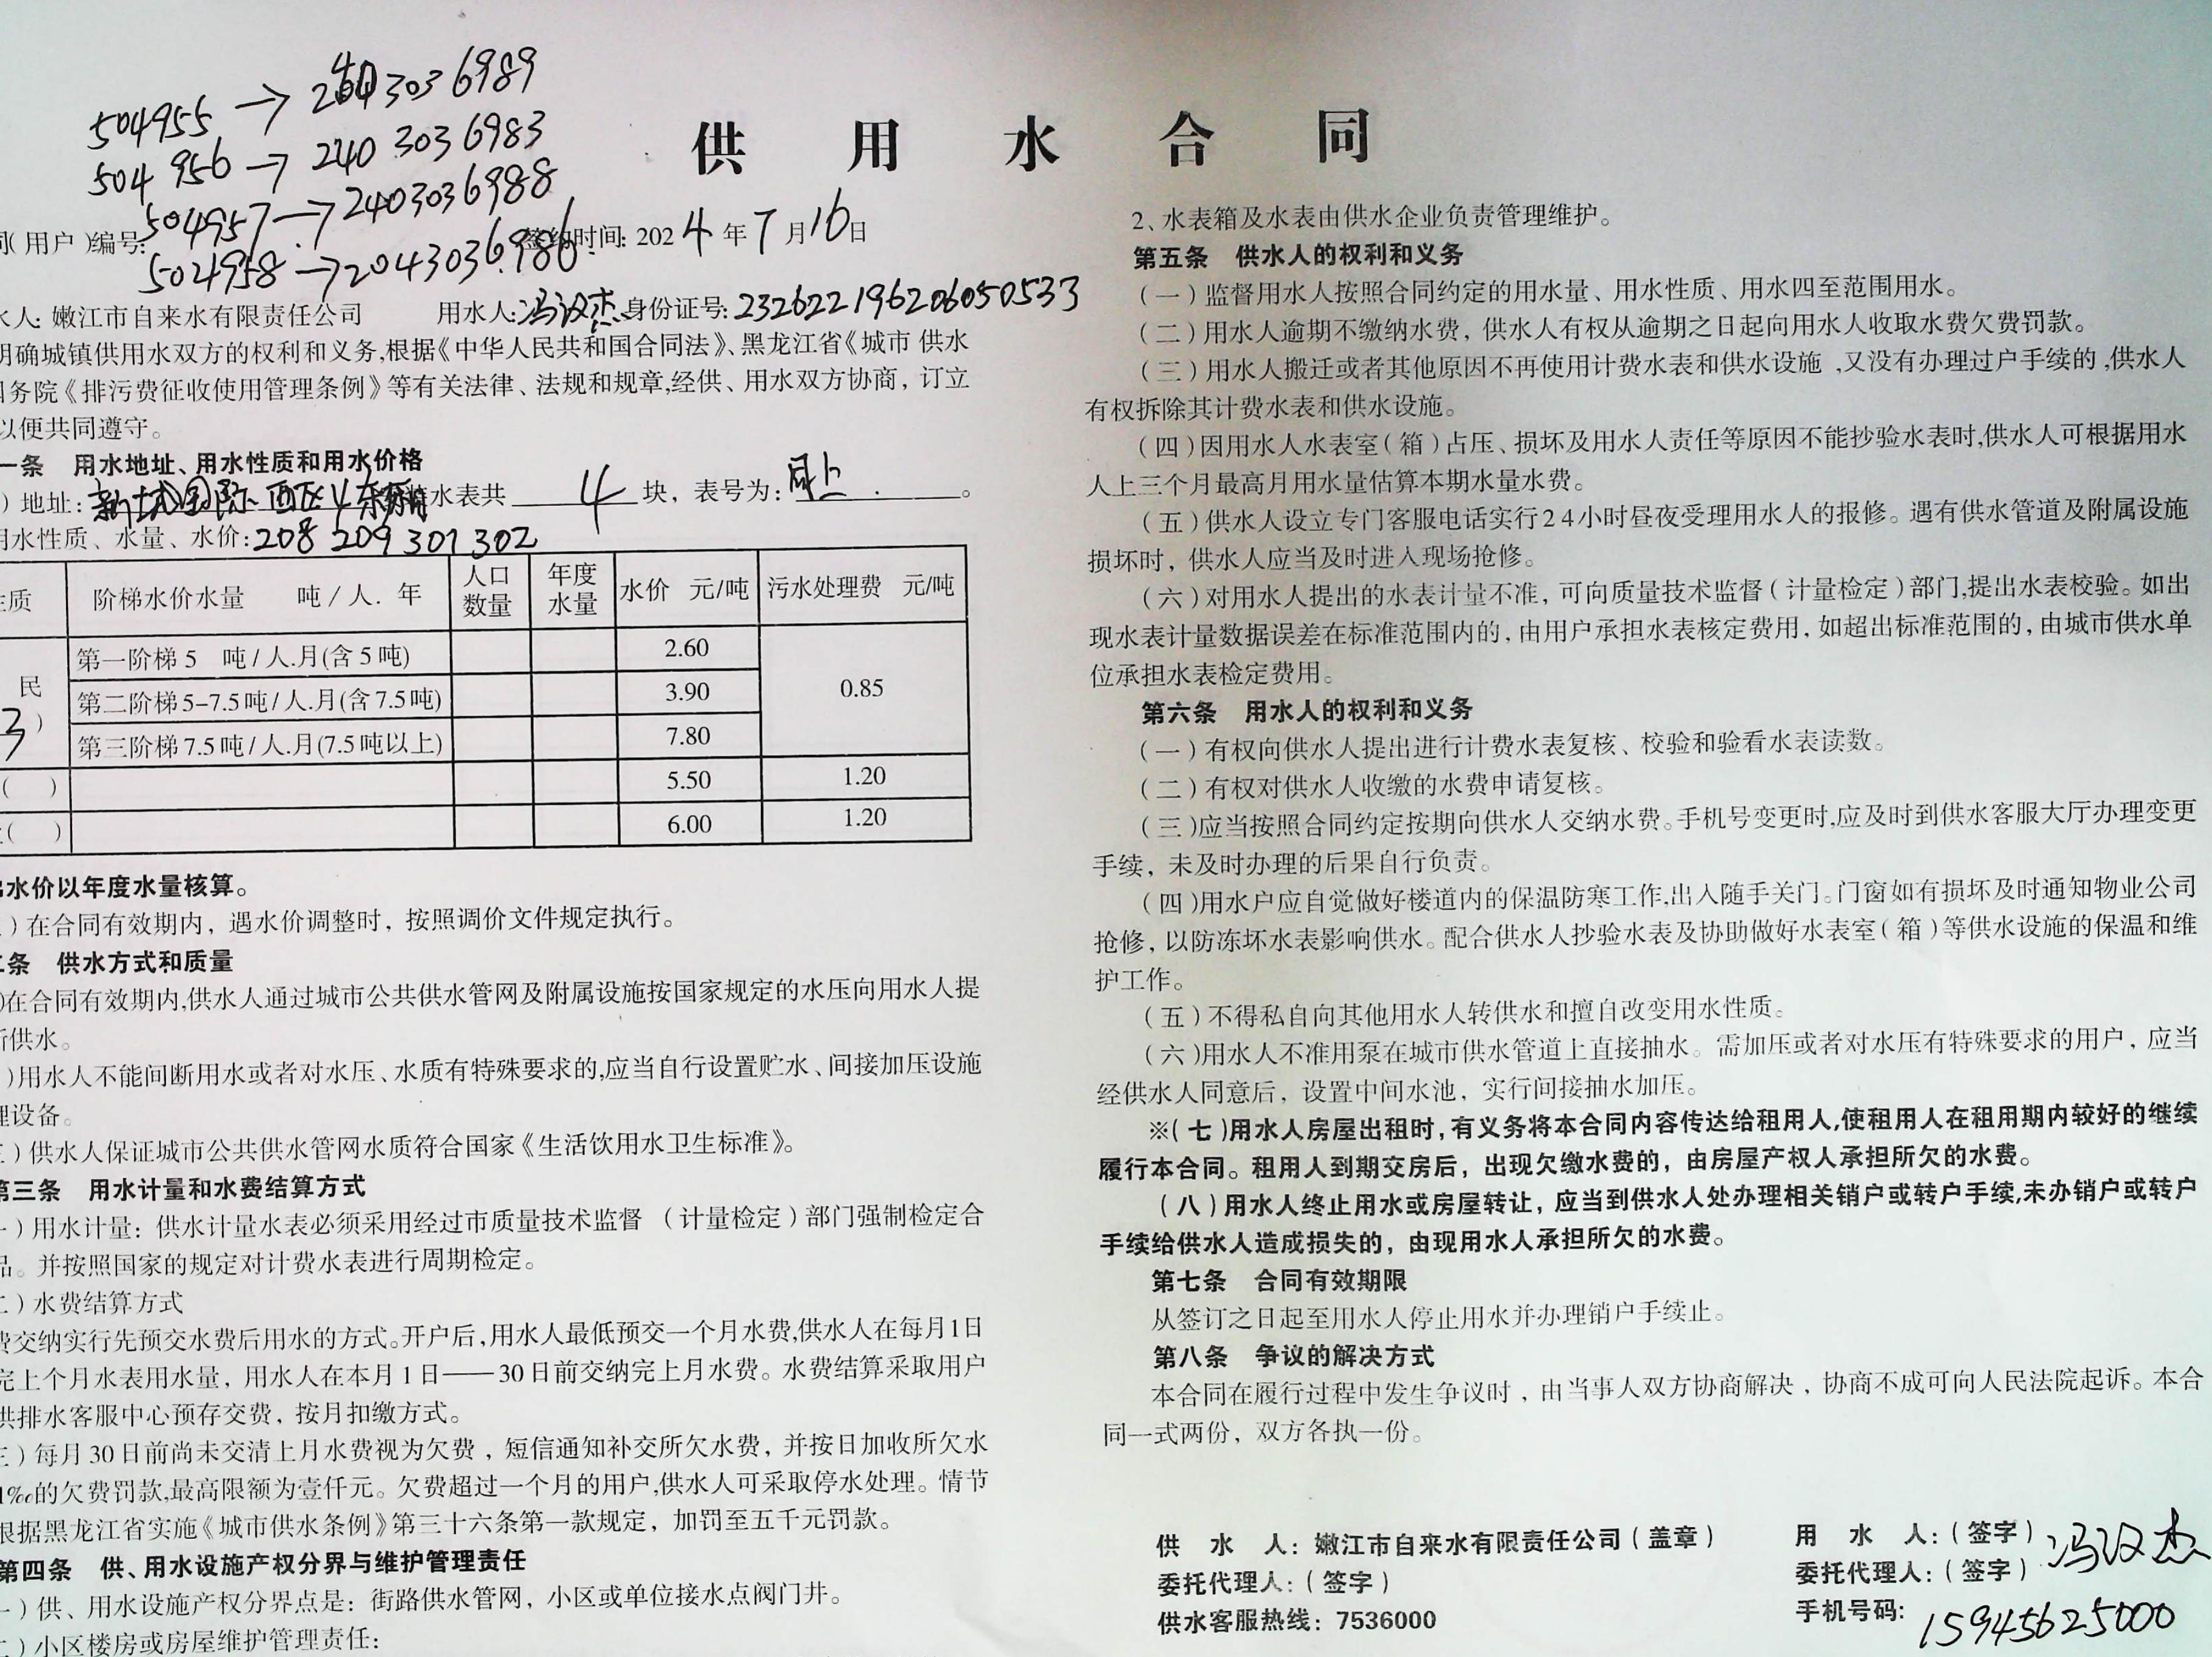 504955 → 2403036989
504956 → 2403036983
504957 → 2403036988
504958 → 2043036986
供 用 水 合 同
(用户)编号:
签约时间: 2024年7月16日
水人: 嫩江市自来水有限责任公司 用水人: 冯汉杰 身份证号: 232622196206050533
明确城镇供用水双方的权利和义务,根据《中华人民共和国合同法》、黑龙江省《城市 供水
务院《排污费征收使用管理条例》等有关法律、法规和规章,经供、用水双方协商，订立
以便共同遵守。
一条 用水地址、用水性质和用水价格
)地址: 新城国际西区4东厢 水表共 4 块，表号为: 同上。
用水性质、水量、水价: 208 209 301 302
质 阶梯水价水量 吨/人. 年 人口数量 年度水量 水价 元/吨 污水处理费 元/吨
民 3 ) 第一阶梯 5 吨/人.月(含 5 吨) 2.60 0.85
第二阶梯 5-7.5吨/人.月(含 7.5吨) 3.90
第三阶梯 7.5 吨/人.月(7.5 吨以上) 7.80
( ) 5.50 1.20
( ) 6.00 1.20
水价以年度水量核算。
)在合同有效期内，遇水价调整时，按照调价文件规定执行。
条 供水方式和质量
)在合同有效期内,供水人通过城市公共供水管网及附属设施按国家规定的水压向用水人提
供水。
)用水人不能间断用水或者对水压、水质有特殊要求的,应当自行设置贮水、间接加压设施
理设备。
)供水人保证城市公共供水管网水质符合国家《生活饮用水卫生标准》。
第三条 用水计量和水费结算方式
)用水计量：供水计量水表必须采用经过市质量技术监督 （计量检定）部门强制检定合
品。并按照国家的规定对计费水表进行周期检定。
)水费结算方式
费交纳实行先预交水费后用水的方式。开户后,用水人最低预交一个月水费,供水人在每月1日
完上个月水表用水量，用水人在本月 1 日——30 日前交纳完上月水费。水费结算采取用户
供排水客服中心预存交费，按月扣缴方式。
)每月 30 日前尚未交清上月水费视为欠费，短信通知补交所欠水费，并按日加收所欠水
1‰的欠费罚款,最高限额为壹仟元。欠费超过一个月的用户,供水人可采取停水处理。情节
根据黑龙江省实施《城市供水条例》第三十六条第一款规定，加罚至五千元罚款。
第四条 供、用水设施产权分界与维护管理责任
)供、用水设施产权分界点是：街路供水管网，小区或单位接水点阀门井。
)小区楼房或房屋维护管理责任:
2、水表箱及水表由供水企业负责管理维护。
第五条 供水人的权利和义务
（一）监督用水人按照合同约定的用水量、用水性质、用水四至范围用水。
（二）用水人逾期不缴纳水费，供水人有权从逾期之日起向用水人收取水费欠费罚款。
（三）用水人搬迁或者其他原因不再使用计费水表和供水设施,又没有办理过户手续的,供水人
有权拆除其计费水表和供水设施。
（四）因用水人水表室（箱）占压、损坏及用水人责任等原因不能抄验水表时,供水人可根据用水
人上三个月最高月用水量估算本期水量水费。
（五）供水人设立专门客服电话实行24小时昼夜受理用水人的报修。遇有供水管道及附属设施
损坏时，供水人应当及时进入现场抢修。
（六）对用水人提出的水表计量不准，可向质量技术监督（计量检定）部门,提出水表校验。如出
现水表计量数据误差在标准范围内的，由用户承担水表核定费用，如超出标准范围的，由城市供水单
位承担水表检定费用。
第六条 用水人的权利和义务
（一）有权向供水人提出进行计费水表复核、校验和验看水表读数。
（二）有权对供水人收缴的水费申请复核。
（三）应当按照合同约定按期向供水人交纳水费。手机号变更时,应及时到供水客服大厅办理变更
手续，未及时办理的后果自行负责。
（四）用水户应自觉做好楼道内的保温防寒工作,出入随手关门。门窗如有损坏及时通知物业公司
抢修，以防冻坏水表影响供水。配合供水人抄验水表及协助做好水表室（箱）等供水设施的保温和维
护工作。
（五）不得私自向其他用水人转供水和擅自改变用水性质。
（六）用水人不准用泵在城市供水管道上直接抽水。需加压或者对水压有特殊要求的用户，应当
经供水人同意后，设置中间水池，实行间接抽水加压。
※（七）用水人房屋出租时,有义务将本合同内容传达给租用人,使租用人在租用期内较好的继续
履行本合同。租用人到期交房后，出现欠缴水费的，由房屋产权人承担所欠的水费。
（八）用水人终止用水或房屋转让，应当到供水人处办理相关销户或转户手续,未办销户或转户
手续给供水人造成损失的，由现用水人承担所欠的水费。
第七条 合同有效期限
从签订之日起至用水人停止用水并办理销户手续止。
第八条 争议的解决方式
本合同在履行过程中发生争议时，由当事人双方协商解决，协商不成可向人民法院起诉。本合
同一式两份，双方各执一份。
供 水 人：嫩江市自来水有限责任公司（盖章） 用 水 人:（签字）冯汉杰
委托代理人:（签字） 委托代理人:（签字）
供水客服热线：7536000 手机号码: 15945625000